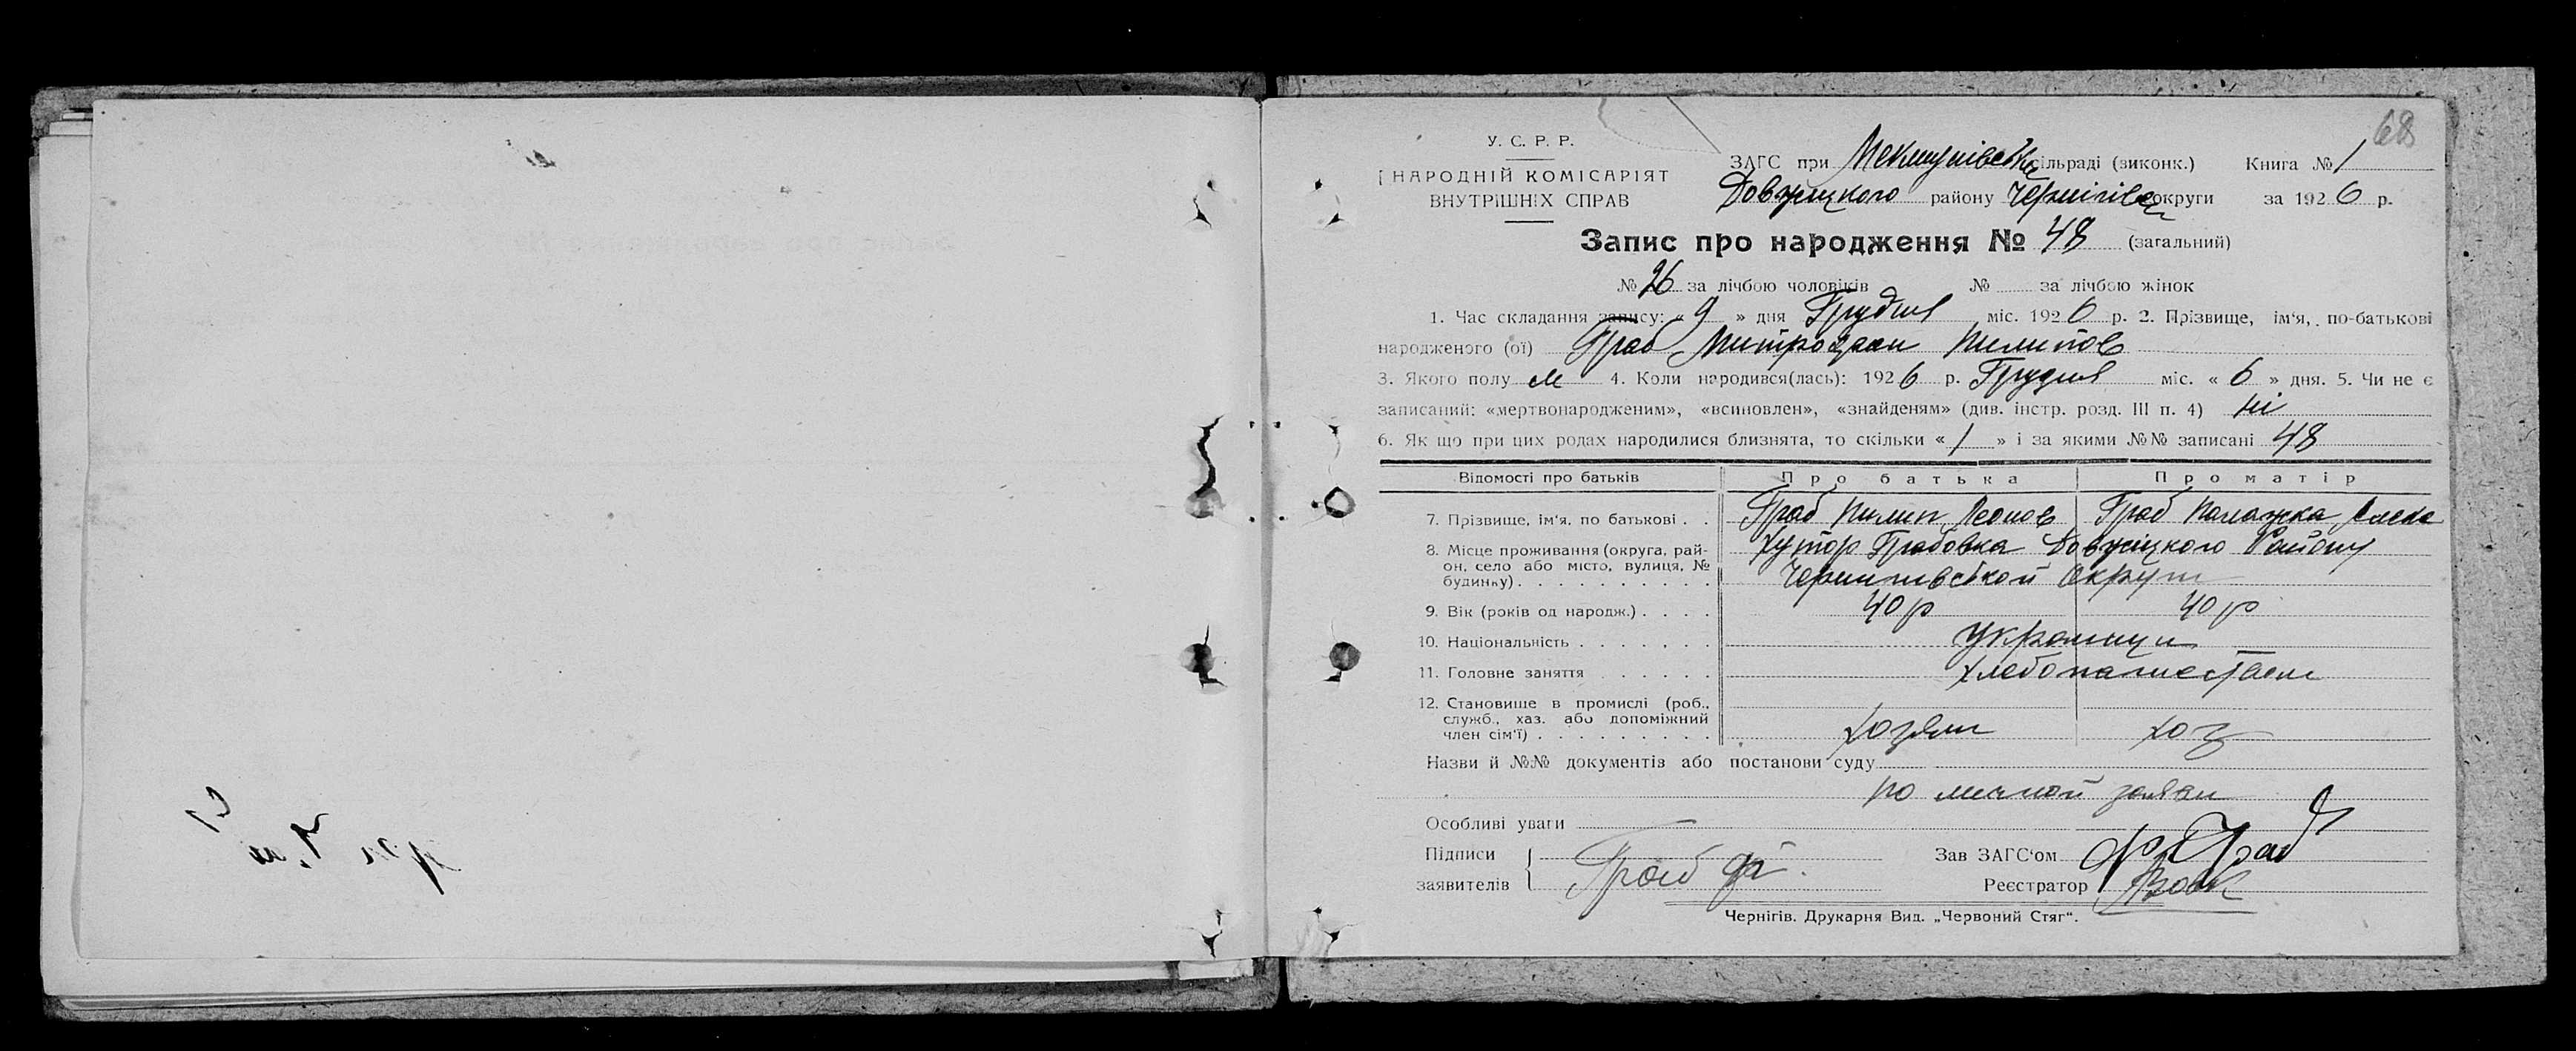 68
У. С. Р. Р.
НАРОДНІЙ КОМІСАРІЯТ
ВНУТРІШНІХ СПРАВ
ЗАГС при сільраді (виконк.) Книга № 1
Довжицкого району Чернігівс округи за 1926 р.
Запис про народження № 48 (загальний)
№ 26 за лічбою чоловіків № за лічбою жінок
1. Час складання запису: « 9 » дня Грудня міс. 1926 р. 2. Прізвище, ім'я, по-батькові
народженого (ої) Граб Митрофан Пилипов
3. Якого полу м 4. Коли народився(лась): 1926 р. Грудня міс. « 6 » дня. 5. Чи не є
записаний: «мертвонародженим», «всиновлен», «знайденям» (див. інстр. розд. III п. 4) ні
6. Як що при цих родах народилися близнята, то скільки « 1 » і за якими №№ записані 48
Відомості про батьків Про батька Про матір
7. Прізвище, ім'я, по батькові . . Граб Пилип Леонов Граб Палажка
8. Місце проживання (округа, рай-
он, село або місто, вулиця, №
будинку) . . . . . . . . . .
хутор Грабовка Довжицкого Району
Округи
9. Вік (років од народж.) . . . . 40 р 40 р
10. Національність . . . . . . . Украинци
11. Головне заняття . . . . . .
12. Становище в промислі (роб.,
служб., хаз. або допоміжний
член сім'ї) . . . . . . . . . хозяин хоз
Назви й №№ документів або постанови суду
по личной заяви
Особливі уваги
Підписи
заявителів Граб
Зав ЗАГС'ом Граб
Реєстратор Вовк
Чернігів. Друкарня Вид. „Червоний Стяг“.